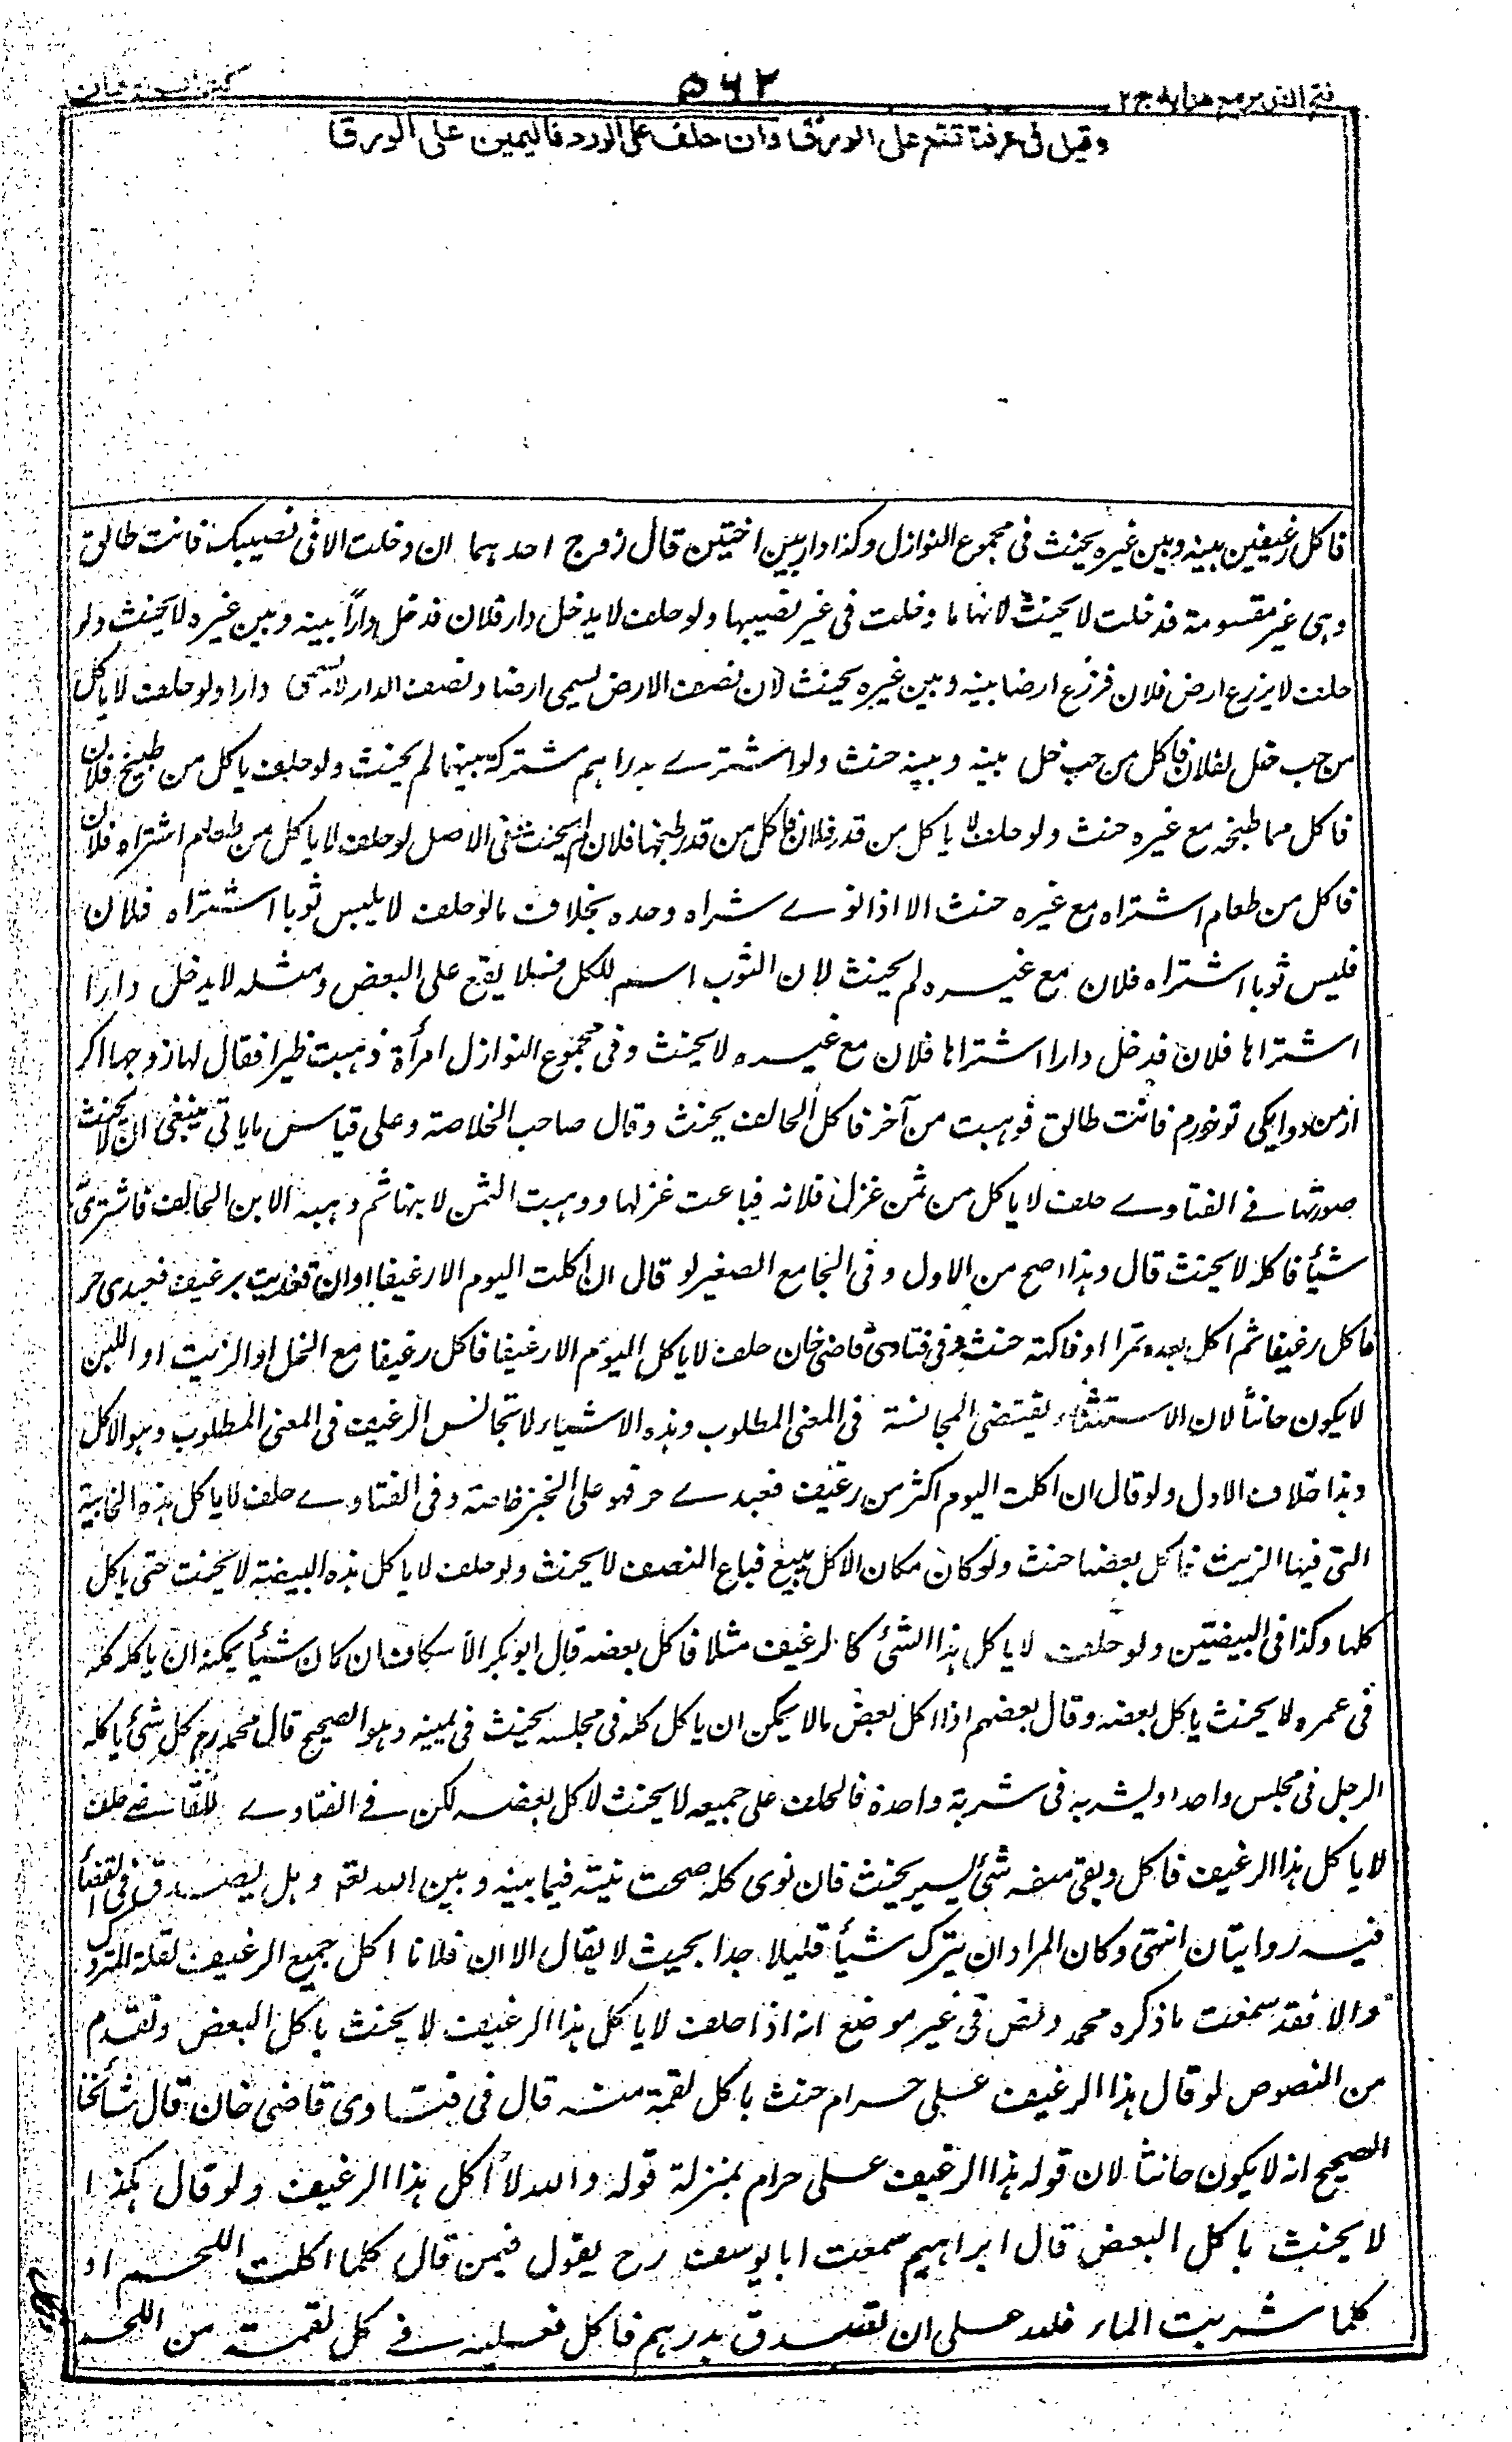 فتح القدير مع هدايه ج ٢
٥٦٢
وقيل في عرفنا تقع على الورق وان حلف على الورد فاليمين على الورق
فاكل رغيفين بينه وبين غيره يحنث في مجموع النوازل وكذا دار بين اختين قال زوج احدهما ان دخلت الا في نصيبك فانت طالق
وهي غير مقسومة فدخلت لا يحنث لانها ما دخلت في غير نصيبها ولو حلف لا يدخل دار فلان فدخل داراً بينه وبين غيره لا يحنث ولو
حلف لا يزرع ارض فلان فزرع ارضا بينه وبين غيره يحنث لان نصف الارض يسمى ارضا ونصف الدار لا يسمى دارا ولو حلف لا ياكل
من حب خل لفلان فاكل من حب خل بينه وبينه حنث ولو اشترے بدراهم مشتركة بينهما لم يحنث ولو حلف ياكل من طبيخ فلان
فاكل مما طبخه مع غيره حنث ولو حلف لا ياكل من قدر فلان فاكل من قدر طبخها فلان لم يحنث في الاصل لو حلف لا ياكل من طعام اشتراه فلان
فاكل من طعام اشتراه مع غيره حنث الا اذا نوے شراه وحده بخلاف ما لو حلف لا يلبس ثوبا اشتراه فلان
فلبس ثوبا اشتراه فلان مع غيره لم يحنث لان الثوب اسم للكل فلا يقع على البعض ومثله لا يدخل دارا
اشتراها فلان فدخل دارا اشتراها فلان مع غيره لا يحنث وفي مجموع النوازل امرأة ذهبت ظيرا فقال لها زوجها اكر
از من دوايكى تو خورم فانت طالق فوهبت من آخر فاكل الحالف يحنث وقال صاحب الخلاصة وعلى قياس ما ياتي ينبغي ان لا يحنث
صورتها في الفتاوے حلف لا ياكل من ثمن غزل فلانه فباعت غزلها ووهبت الثمن لابنها ثم وهبه الابن الحالف فاشترى
شيأ فاكله لا يحنث قال وهذا اصح من الاول وفي الجامع الصغير لو قال ان اكلت اليوم الا رغيفا او ان تغديت برغيف فعبدى حر
فاكل رغيفا ثم اكل بعده تمرا او فاكهة حنث وفي فتاوى قاضي خان حلف لا ياكل اليوم الا رغيفا فاكل رغيفا مع الخل او الزيت او اللبن
لا يكون حانثا لان الاستثناء يقتضى المجانسة في المعنى المطلوب وهذه الاشياء لا تجانس الرغيف في المعنى المطلوب وهو الاكل
وهذا خلاف الاول ولو قال ان اكلت اليوم اكثر من رغيف فعبدے حر فهو على الخبز خاصة وفي الفتاوے حلف لا ياكل هذه الخابية
التي فيها الزيت فاكل بعضها حنث ولو كان مكان الاكل بيع فباع النصف لا يحنث ولو حلف لا ياكل هذه البيضة لا يحنث حتى ياكل
كلها وكذا في البيضتين ولو حلف لا ياكل هذا الشئ كالرغيف مثلا فاكل بعضه قال ابوبكر الاسكاف ان كان شيأ يمكنه ان ياكله كله
في عمره لا يحنث ياكل بعضه وقال بعضهم اذا اكل بعض ما لا يمكن ان ياكل كله في مجلسه يحنث في يمينه وهو الصحيح قال محمد رح كل شئ ياكله
الرجل في مجلس واحد او يشربه في شربة واحدة فالحلف على جميعه لا يحنث لاكل بعضه لكن في الفتاوے للقاضے حلف
لا ياكل هذا الرغيف فاكل وبقي منه شئ يسير يحنث فان نوى كله صحت نيته فيما بينه وبين الله تعه وهل يصدق في القضأ
فيه روايتان انتهى وكان المراد ان يترك شيأ قليلا جدا بحيث لا يقال الا ان فلانا اكل جميع الرغيف لقلة المتروك
والا فقد سمعت ما ذكره محمد ونص في غير موضع انه اذا حلف لا ياكل هذا الرغيف لا يحنث باكل البعض وتقدم
من النصوص لو قال هذا الرغيف على حرام حنث باكل لقمة منه قال في فتاوى قاضى خان قال مشائخنا
الصحيح انه لا يكون حانثا لان قوله هذا الرغيف على حرام بمنزلة قوله والله لا أكل هذا الرغيف ولو قال هكذا
لا يحنث باكل البعض قال ابراهيم سمعت ابا يوسف رح يقول فيمن قال كلما اكلت اللحم او
كلما شربت الماء فلله على ان تصدق بدرهم فاكل فعليه في كل لقمة من اللحم